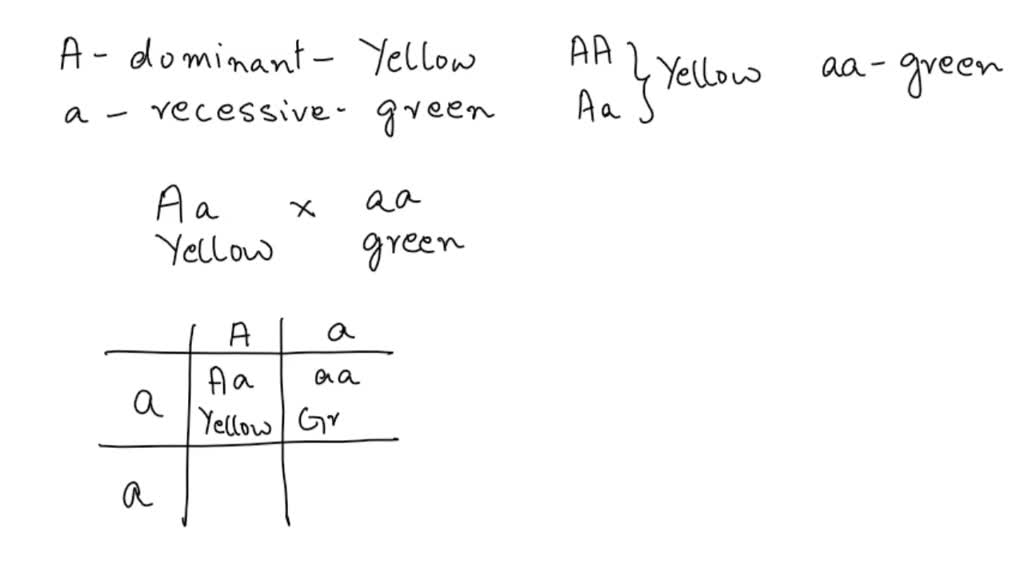 A - dominant - Yellow
a - recessive - green
AA
Aa
} Yellow
aa - green
Aa × aa
Yellow green
A a
a Aa aa
Yellow Gr
a